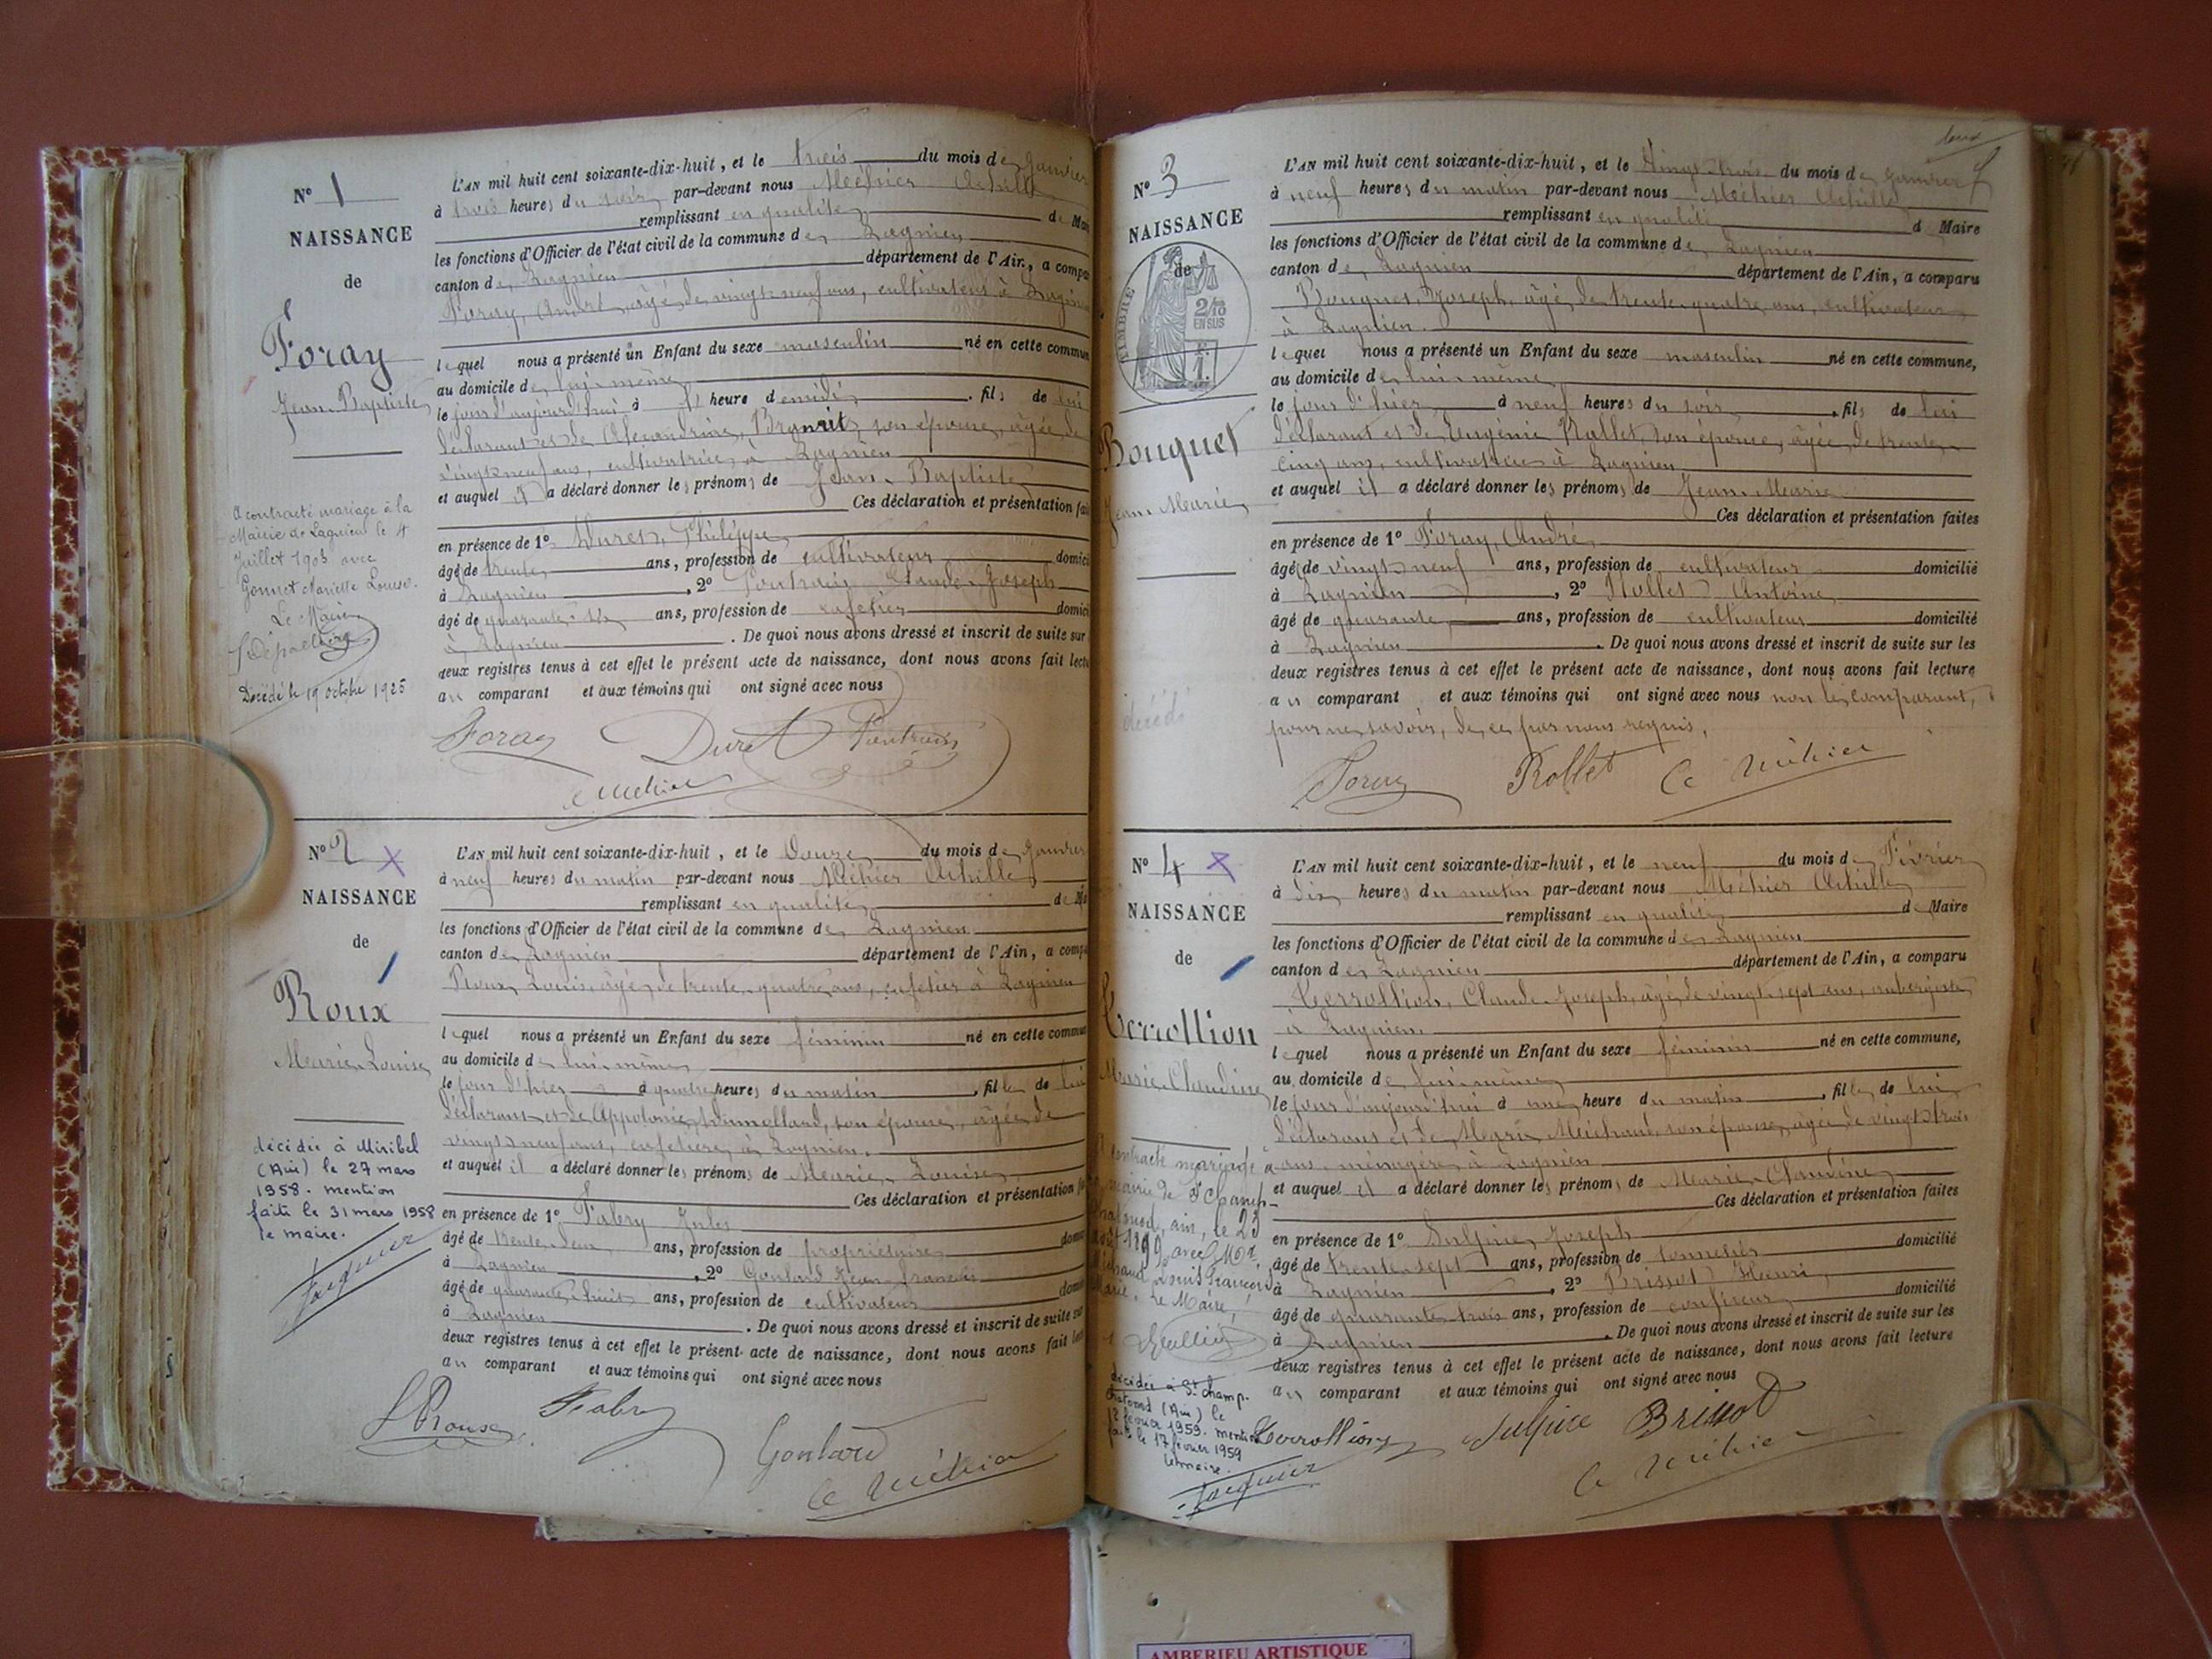 N° 1
NAISSANCE
de
Foray
Jean-Baptiste
A contracté mariage à la
Mairie de Lagnieu le 4
Juillet 1903 avec
Gonnet Mariette Louise.
Le Maire
Décédé le 19 octobre 1925
L'AN mil huit cent soixante-dix-huit, et le trois du mois de Janvier
à trois heures du soir par-devant nous Méhier Achille
remplissant en qualité de Mai
les fonctions d'Officier de l'état civil de la commune de Lagnieu
canton de Lagnieu département de l'Ain, a compa
Foray, André, âgé de vingt-neuf ans, cultivateur à Lagnieu
lequel nous a présenté un Enfant du sexe masculin né en cette commun
au domicile de lui-même
le jour d'aujourd'hui à heure de midi, fils de lui
déclarant et de Alexandrine, son épouse, âgée de
vingt-neuf ans, cultivatrice à Lagnieu
et auquel il a déclaré donner les prénoms de Jean-Baptiste
Ces déclaration et présentation fai
en présence de 1° Duret, Philippe
âgé de trente ans, profession de cultivateur domici
à Lagnieu, 2° Claude-Joseph
âgé de quarante ans, profession de cafetier domici
à Lagnieu. De quoi nous avons dressé et inscrit de suite sur
deux registres tenus à cet effet le présent acte de naissance, dont nous avons fait lectu
au comparant et aux témoins qui ont signé avec nous
Foray Duret
A Méhier
N° 2
NAISSANCE
de
Roux
Marie-Louise
décédée à Miribel
(Ain) le 27 mars
1958. mention
faite le 31 mars 1958
le maire.
L'AN mil huit cent soixante-dix-huit, et le douze du mois de Janvier
à neuf heures du matin par-devant nous Méhier Achille
remplissant en qualité de Ma
les fonctions d'Officier de l'état civil de la commune de Lagnieu
canton de Lagnieu département de l'Ain, a compa
Roux, Louis, âgé de trente-quatre ans, cafetier à Lagnieu
lequel nous a présenté un Enfant du sexe féminin né en cette commun
au domicile de lui-même
le jour d'hier à quatre heures du matin, fille de lui
déclarant et de son épouse, âgée de
vingt-neuf ans, cafetière à Lagnieu.
et auquel il a déclaré donner les prénoms de Marie-Louise
Ces déclaration et présentation fa
en présence de 1° Fabry Jules
âgé de trente-deux ans, profession de propriétaire domi
à Lagnieu, 2° Goulard Jean-François
âgé de quarante-huit ans, profession de cultivateur domi
à Lagnieu. De quoi nous avons dressé et inscrit de suite sur
deux registres tenus à cet effet le présent acte de naissance, dont nous avons fait lect
au comparant et aux témoins qui ont signé avec nous
L Roux Fabry
Goulard
A Méhier
deux
N° 3
NAISSANCE
de
TIMBRE
2/10
EN SUS
Bouquet
Jean-Marie
décédé
L'AN mil huit cent soixante-dix-huit, et le vingt-trois du mois de Janvier
à neuf heures du matin par-devant nous Méhier Achille
remplissant en qualité de Maire
les fonctions d'Officier de l'état civil de la commune de Lagnieu
canton de Lagnieu département de l'Ain, a comparu
Bouquet, Joseph, âgé de trente-quatre ans, cultivateur
à Lagnieu.
lequel nous a présenté un Enfant du sexe masculin né en cette commune,
au domicile de lui-même
le jour d'hier à neuf heures du soir, fils de lui
déclarant et de Eugénie Rollet, son épouse, âgée de trente-
cinq ans, cultivatrice à Lagnieu
et auquel il a déclaré donner les prénoms de Jean-Marie
Ces déclaration et présentation faites
en présence de 1° Foray, André
âgé de vingt-neuf ans, profession de cultivateur domicilié
à Lagnieu, 2° Rollet Antoine
âgé de quarante ans, profession de cultivateur domicilié
à Lagnieu. De quoi nous avons dressé et inscrit de suite sur les
deux registres tenus à cet effet le présent acte de naissance, dont nous avons fait lecture
au comparant et aux témoins qui ont signé avec nous non le comparant,
pour ne savoir, de ce par nous requis.
Foray Rollet A Méhier
N° 4
NAISSANCE
de
Terrollion
Marie-Claudine
contracté mariage à
mairie de St Champ-
ain, le 23
1899 avec Mr
Michaud Louis François
Marie. Le Maire,
décédée à St Champ-
(Ain) le
février 1959. mention
faite le 17 février 1959
le maire.
L'AN mil huit cent soixante-dix-huit, et le neuf du mois de Février
à dix heures du matin par-devant nous Méhier Achille
remplissant en qualité de Maire
les fonctions d'Officier de l'état civil de la commune de Lagnieu
canton de Lagnieu département de l'Ain, a comparu
Terrollion, Claude-Joseph, âgé de vingt-sept ans, aubergiste
à Lagnieu.
lequel nous a présenté un Enfant du sexe féminin né en cette commune,
au domicile de lui-même
le jour d'aujourd'hui à une heure du matin, fille de lui
déclarant et de Marie Michaud, son épouse, âgée de vingt-trois
ans, ménagère à Lagnieu
et auquel il a déclaré donner les prénoms de Marie-Claudine
Ces déclaration et présentation faites
en présence de 1° Sulpice, Joseph
âgé de trente-sept ans, profession de tonnelier domicilié
à Lagnieu, 2° Brissot Henri
âgé de quarante-trois ans, profession de confiseur domicilié
à Lagnieu. De quoi nous avons dressé et inscrit de suite sur les
deux registres tenus à cet effet le présent acte de naissance, dont nous avons fait lecture
au comparant et aux témoins qui ont signé avec nous
Terrollion Sulpice Brissot
A Méhier
AMBERIEU ARTISTIQUE